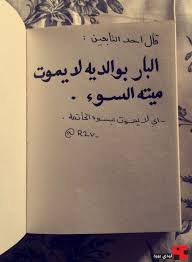 قال احد التابعين :
البار بوالديه لا يموت
ميته السوء .
- اي لا يموت بسوء الخاتمه . -
@R2v_